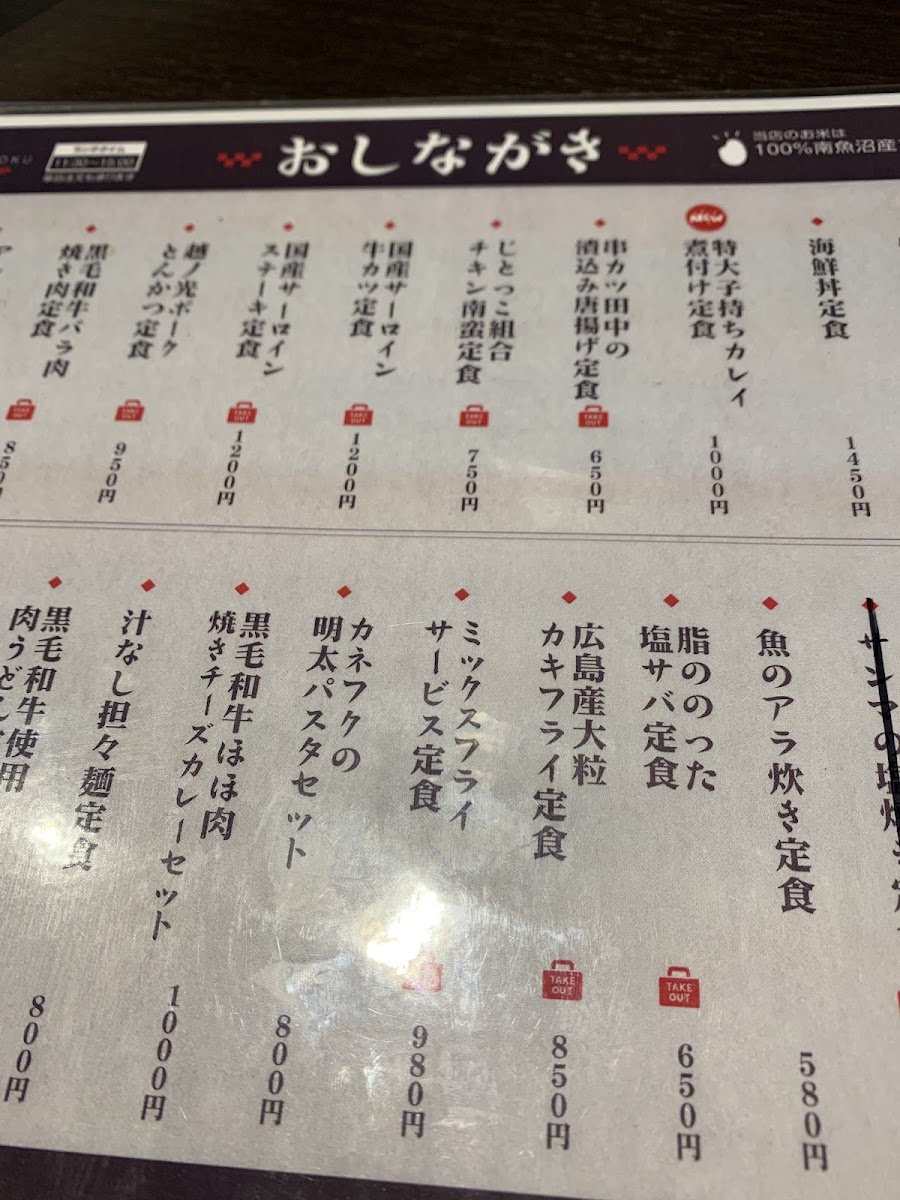 ランチタイム
11:30~15:00
おしながき
当店のお米は
100%南魚沼産
海鮮丼定食
1450円
NEW
特大子持ちカレイ
煮付け定食
1000円
串カツ田中の
漬込み唐揚げ定食
TAKE OUT
650円
じとっこ組合
チキン南蛮定食
TAKE OUT
750円
国産サーロイン
牛カツ定食
TAKE OUT
1200円
国産サーロイン
ステーキ定食
TAKE OUT
1200円
越ノ光ポーク
とんかつ定食
TAKE OUT
950円
黒毛和牛バラ肉
焼き肉定食
TAKE OUT
850円
サンマの塩焼き
魚のアラ炊き定食
580円
脂ののった
塩サバ定食
TAKE OUT
650円
広島産大粒
カキフライ定食
TAKE OUT
850円
ミックスフライ
サービス定食
980円
カネフクの
明太パスタセット
800円
黒毛和牛ほほ肉
焼きチーズカレーセット
1000円
汁なし担々麺定食
800円
黒毛和牛使用
肉うどん